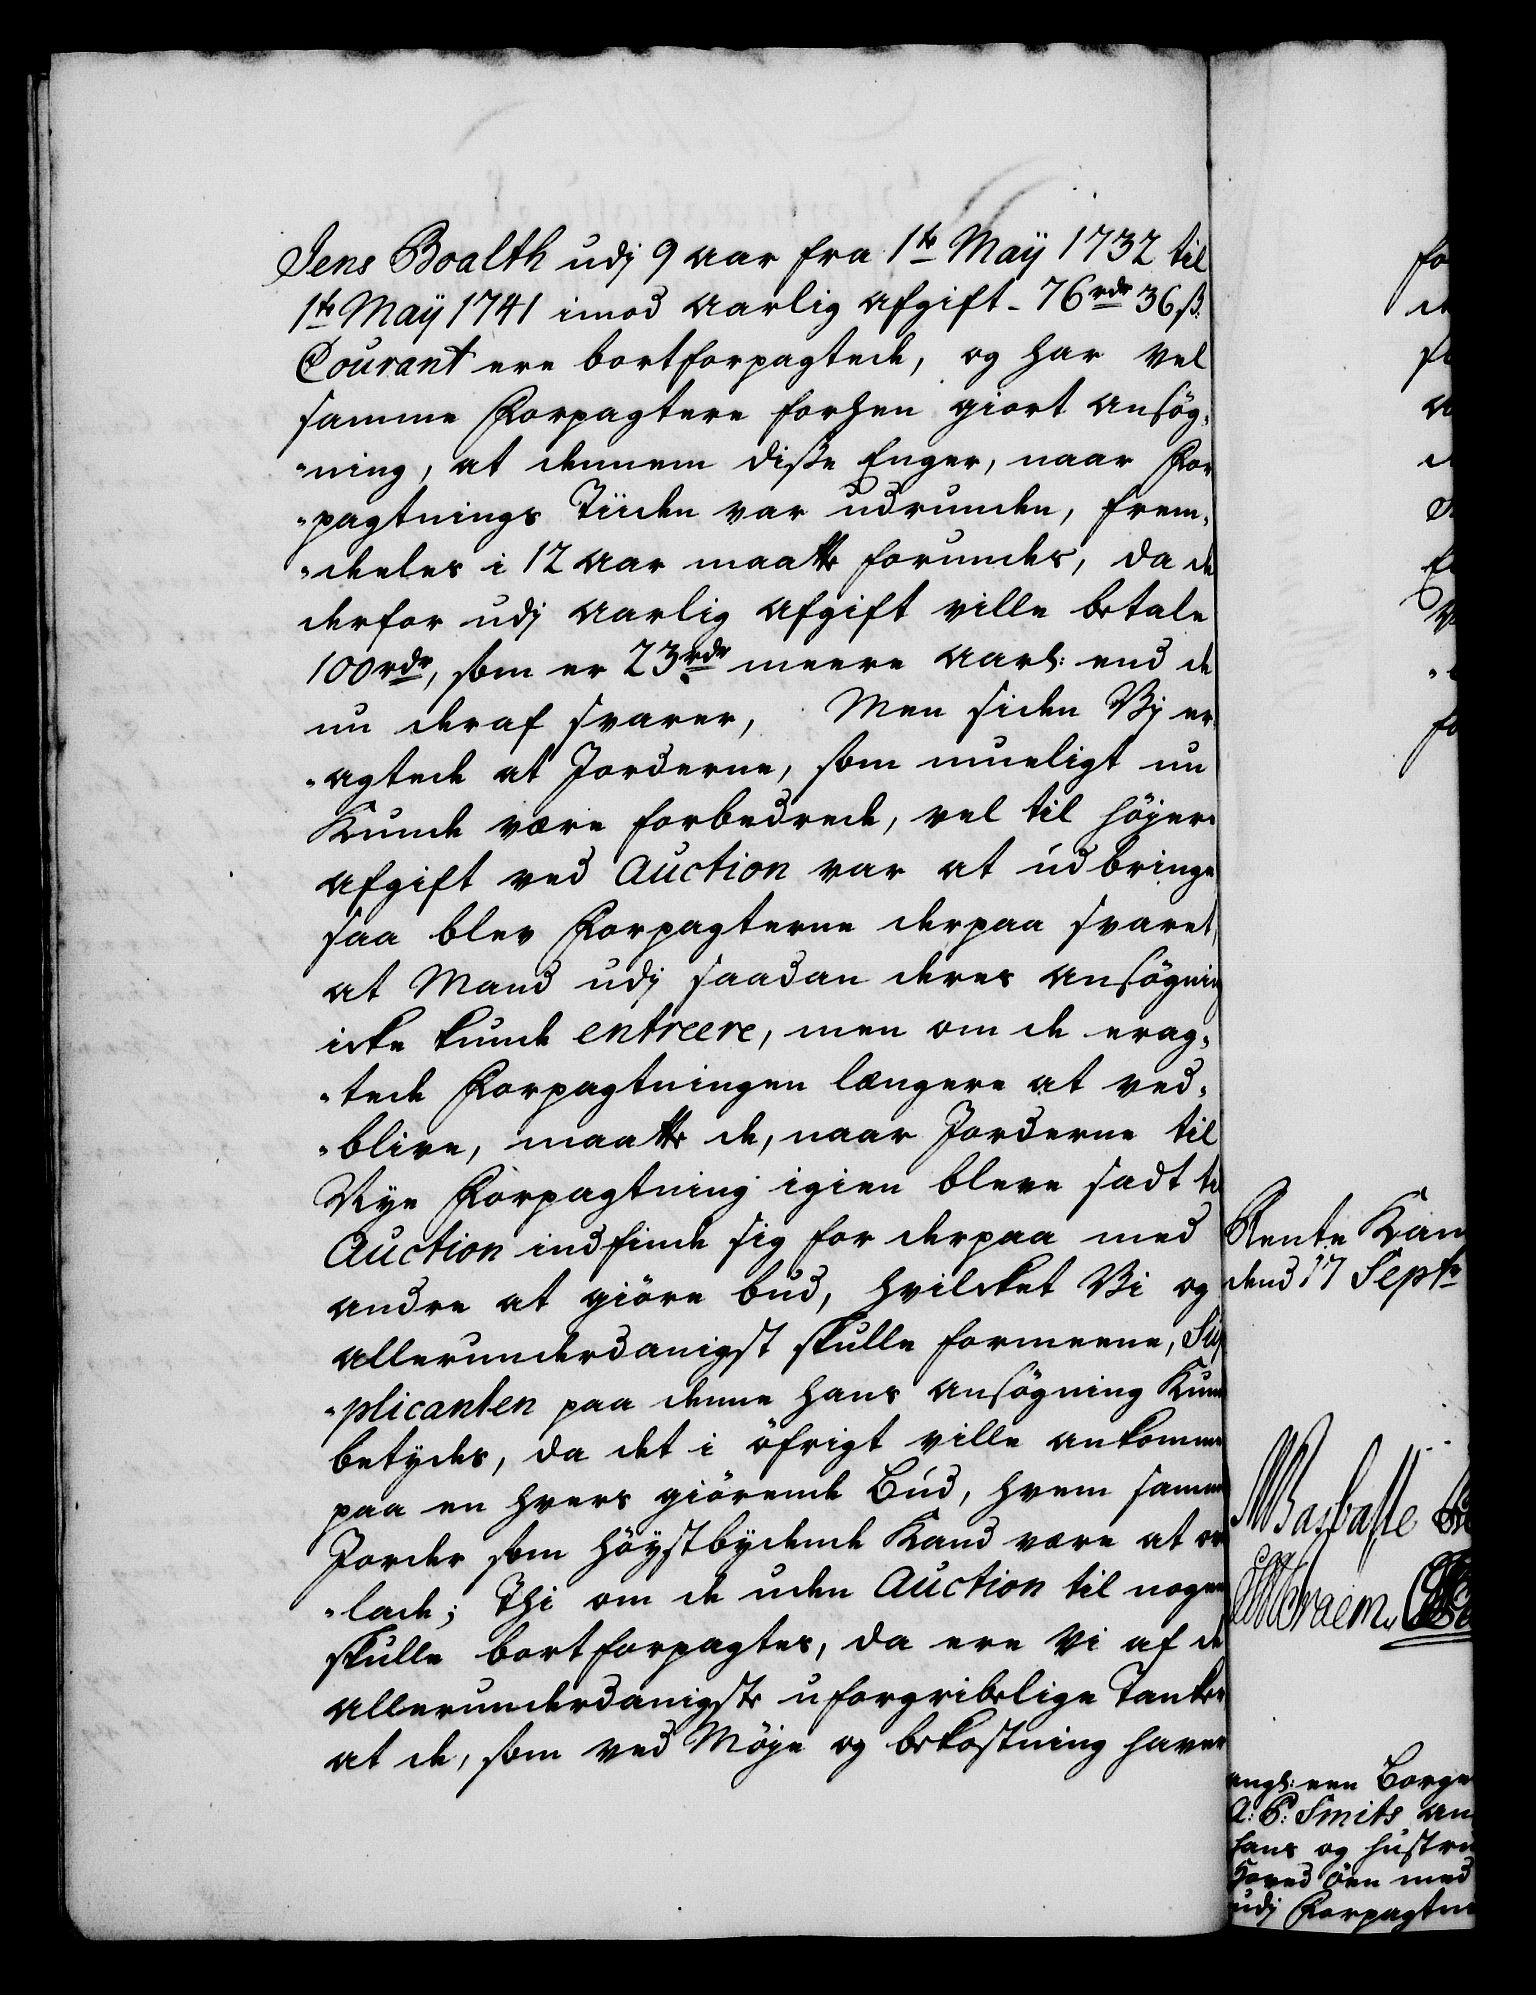 Jens Boalth udj 9 aar fra 1te Maÿ 1732 til
1te Maÿ 1741 imod aarlig afgift - 76 rdr 36 ß.
Courant ere bortforpagtede, og har vel
samme Forpagtere forhen giort ansøg-
-ning, at dennem disse Enger, naar For
-pagtnings Tiiden var udrunden, frem-
-deeles i 12 aar maatte forundes, da de
derfor udj aarlig afgift ville betale
100 rdr, som er 23 rdr meere aarl: end de
nu deraf svarer, Men siden Vj er
-agtede at Jorderne, som mueligt nu
Kunde være forbedrede, vel til höjere
afgift ved Auction var at udbringe
saa blev Forpagterne derpaa svaret,
at Mand udj saadan deres ansøgning
icke kunde entreere, men om de erag-
-tede Forpagtningen længere at ved-
-blive, maatte de, naar Jorderne til
Nye Forpagtning igien bleve sadt til
Auction indfinde sig for derpaa med
andre at giöre bud, hvilcket Vi og
allerunderdanigst skulle formeene, Sup
-plicanten paa denne hans ansøgning Kunde
betydes, da det i öfrigt ville ankomme
paa en hvers giörende Bud, hvem samme
Jorder som höystbydende Kand være at over
-lade; Thi om de uden Auction til nogen
skulle bortforpagtes, da ere Vi af de
allerunderdanigste uforgribelige Tanker
at de, som ved Möje og bekostning haver
Rente Kam
dend 17 Septr
angl: een Borge
A: P: Smits an
hans og hustru
Hoved Öen med
udj Forpagtn